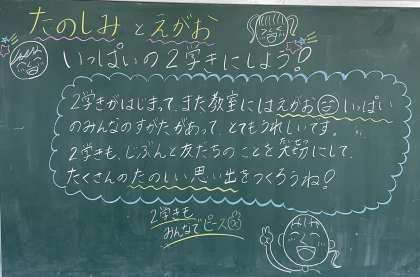 たのしみ と えがお
いっぱいの2学きにしよう!
2学きがはじまって、また教室にはえがおいっぱい
のみんなのすがたがあって、とてもうれしいです。
2学きも、じぶんと友だちのことを大切にして、
たくさんのたのしい思い出をつくろうね!
2学きも
みんなでピース